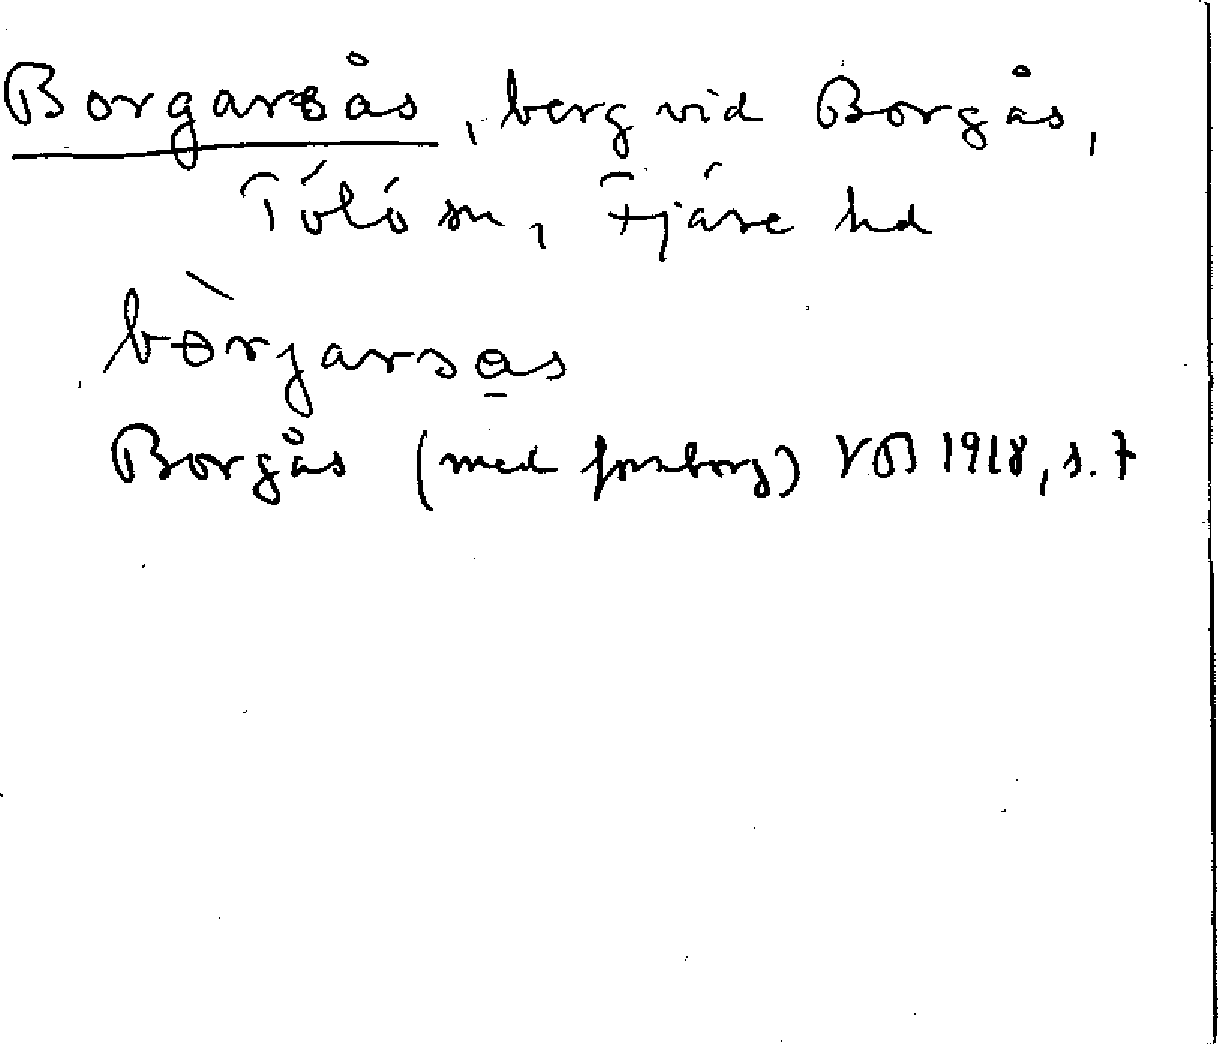 Borgarsås, berg vid Borgås,
Tölö sn, Fjäre hd
bòrjarsas
Borgås (med fornborg) VOB 1918, s. 7